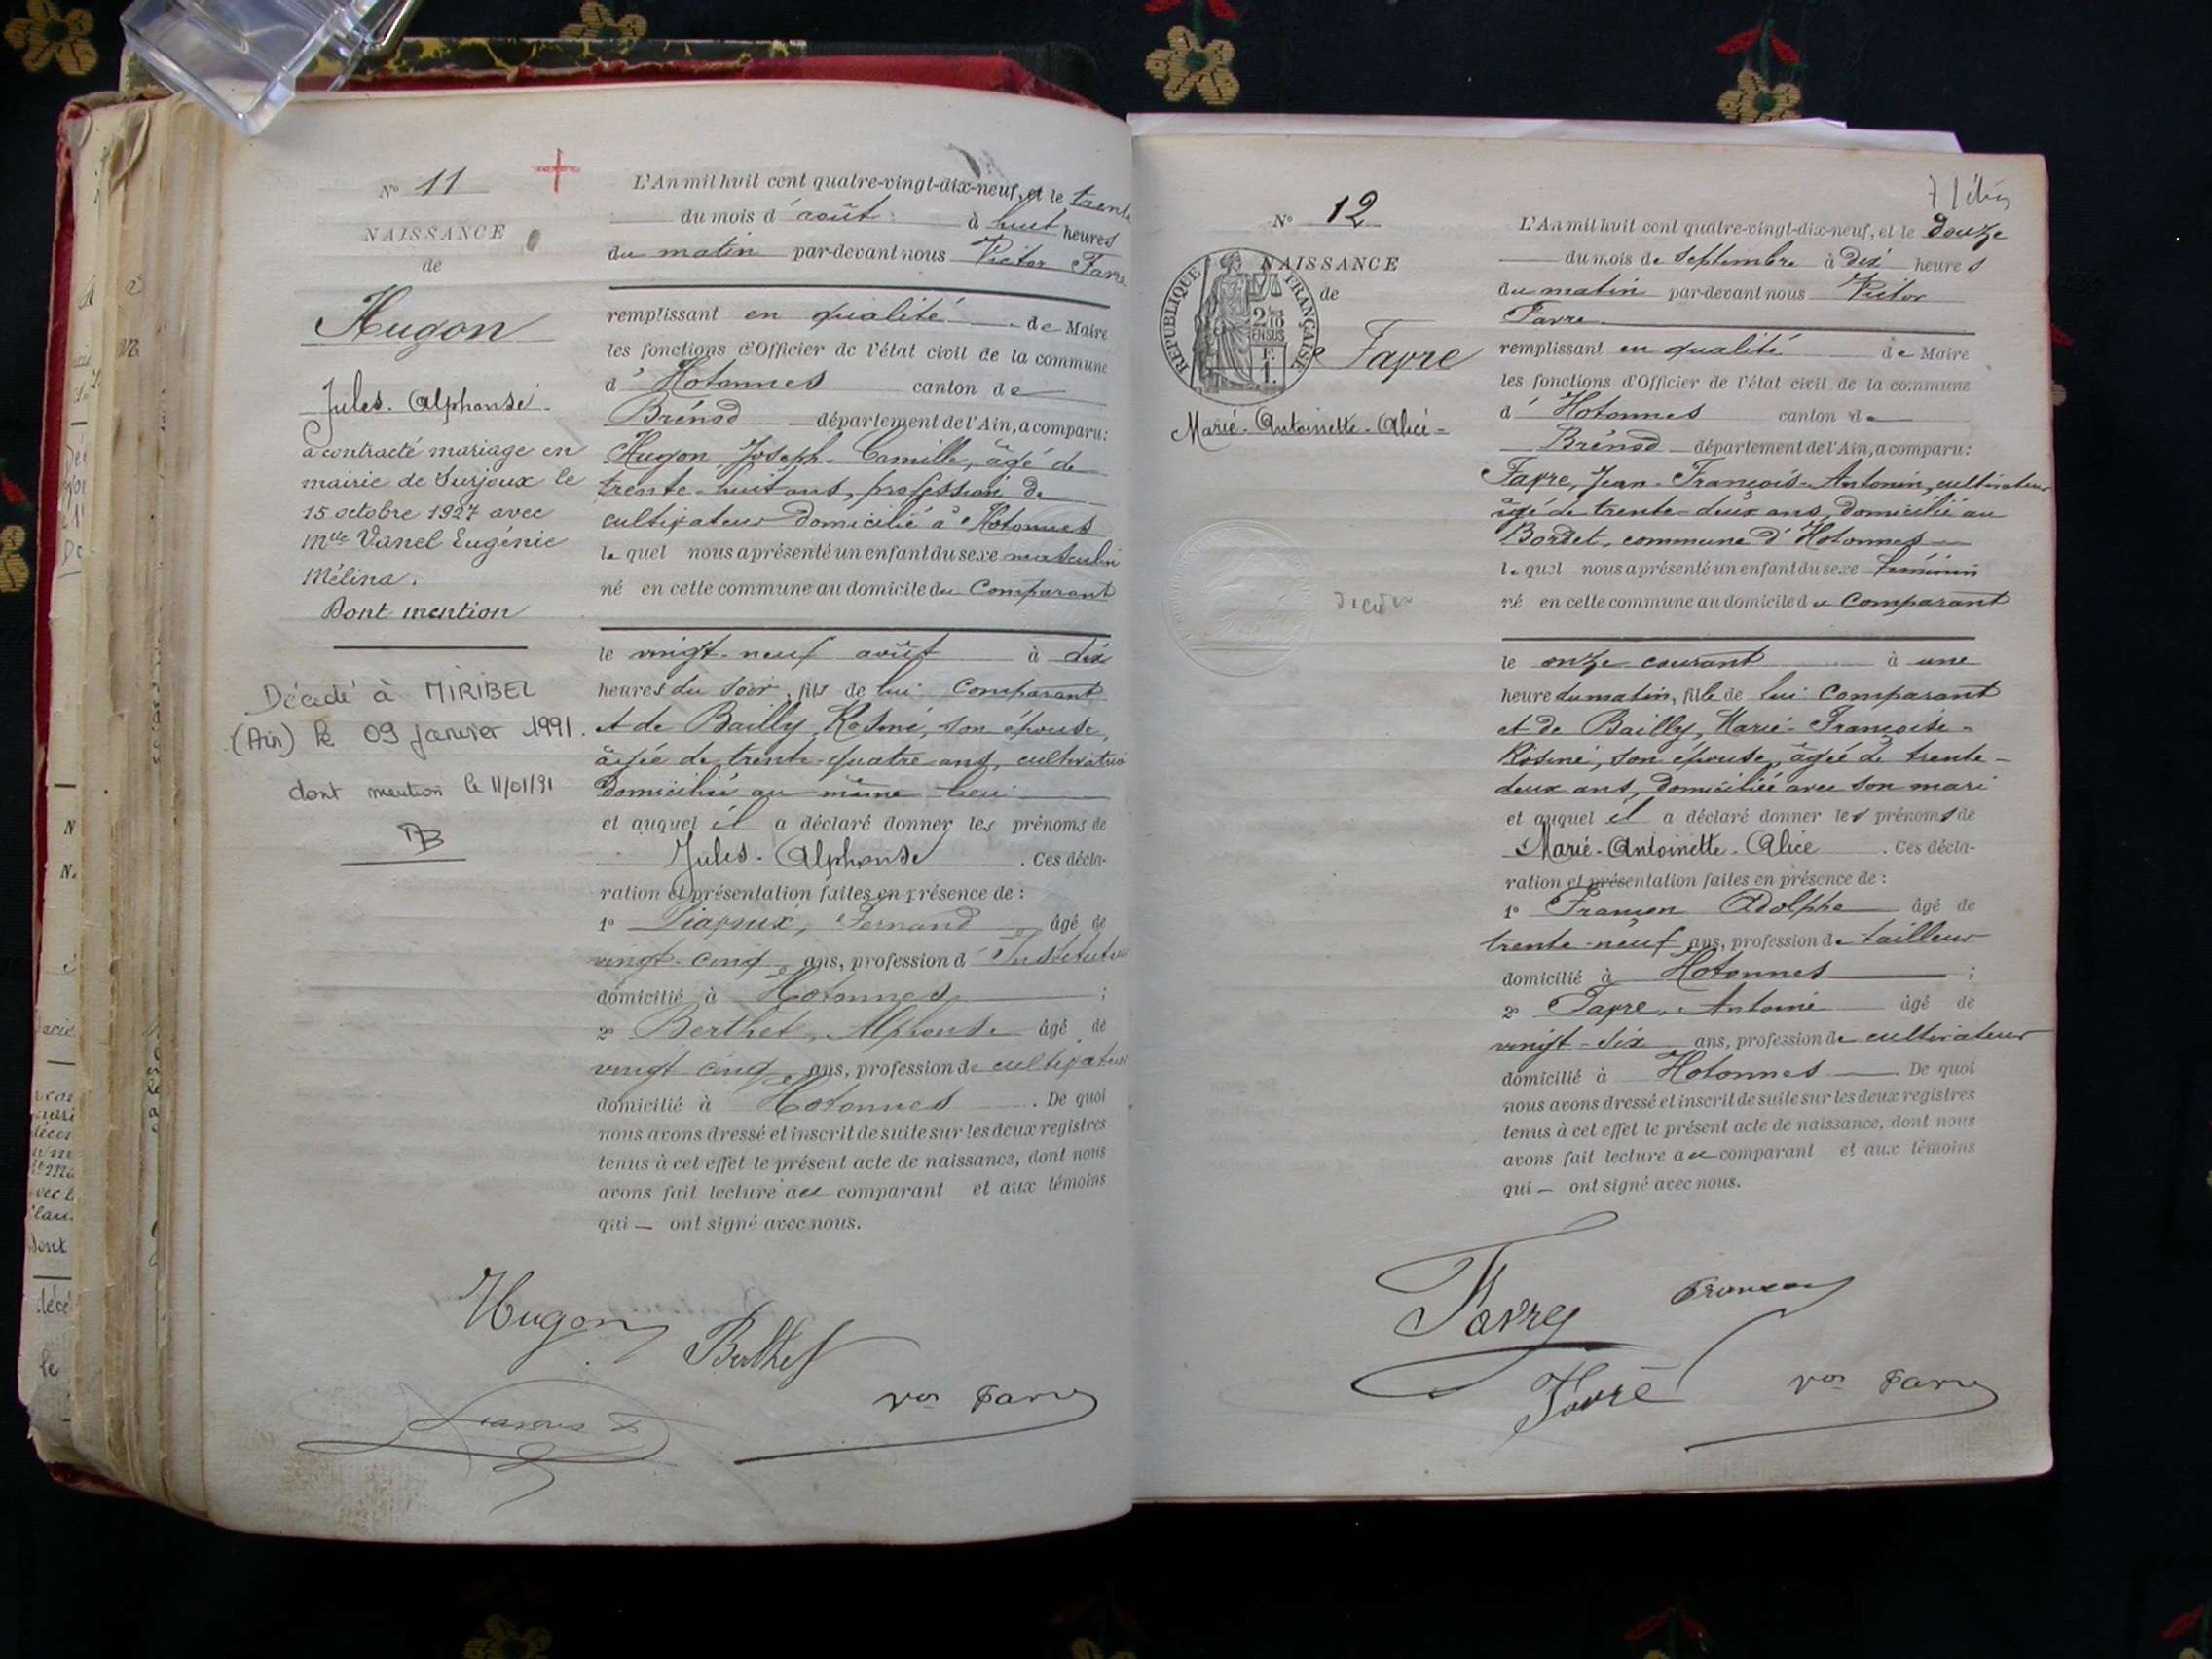 N° 11
NAISSANCE
de
Hugon
Jules-Alphonse
a contracté mariage en
mairie de Surjoux le
15 octobre 1927 avec
Mlle Vanel Eugénie
Mélina.
Dont mention
Décédé à MIRIBEL
(Ain) le 09 janvier 1991.
dont mention le 11/01/91
L'An mil huit cent quatre-vingt-dix-neuf, et le trente
du mois d'août à huit heures
du matin par-devant nous Victor Favre
remplissant en qualité de Maire
les fonctions d'Officier de l'état civil de la commune
d'Hotonnes canton de
Brénod département de l'Ain, a comparu:
Hugon Joseph-Camille, âgé de
trente-huit ans, profession de
cultivateur domicilié à Hotonnes
lequel nous a présenté un enfant du sexe masculin
né en cette commune au domicile du Comparant
le vingt-neuf août à dix
heures du soir, fils de lui Comparant
et de Bailly Rosine, son épouse,
âgée de trente-quatre ans, cultivatrice
domiciliée au même lieu
et auquel il a déclaré donner les prénoms de
Jules-Alphonse. Ces décla-
ration et présentation faites en présence de:
1° Fernand âgé de
vingt-cinq ans, profession d'Instituteur
domicilié à Hotonnes;
2° Berthet, Alphonse âgé de
vingt cinq ans, profession de cultivateur
domicilié à Hotonnes. De quoi
nous avons dressé et inscrit de suite sur les deux registres
tenus à cet effet le présent acte de naissance, dont nous
avons fait lecture au comparant et aux témoins
qui — ont signé avec nous.
Hugon
Berthet
Vor Favre
N° 12
NAISSANCE
de
REPUBLIQUE FRANÇAISE
Favre
Marie-Antoinette-Alice
L'An mil huit cent quatre-vingt-dix-neuf, et le douze
du mois de Septembre à dix heures
du matin par-devant nous Victor
Favre
remplissant en qualité de Maire
les fonctions d'Officier de l'état civil de la commune
d'Hotonnes canton de
Brénod département de l'Ain, a comparu:
Favre, Jean-François-Antonin, cultivateur
âgé de trente-deux ans, domicilié au
Bordet, commune d'Hotonnes
lequel nous a présenté un enfant du sexe féminin
né en cette commune au domicile du Comparant
le onze courant à une
heure du matin, fille de lui Comparant
et de Bailly, Marie-Françoise-
Rosine, son épouse, âgée de trente-
deux ans, domiciliée avec son mari
et auquel il a déclaré donner les prénoms de
Marie-Antoinette-Alice. Ces décla-
ration et présentation faites en présence de:
1° Françon Adolphe âgé de
trente-neuf ans, profession de tailleur
domicilié à Hotonnes;
2° Favre, Antoine âgé de
vingt-six ans, profession de cultivateur
domicilié à Hotonnes. De quoi
nous avons dressé et inscrit de suite sur les deux registres
tenus à cet effet le présent acte de naissance, dont nous
avons fait lecture au comparant et aux témoins
qui — ont signé avec nous.
Favre
Françon
Favre
Vor Favre